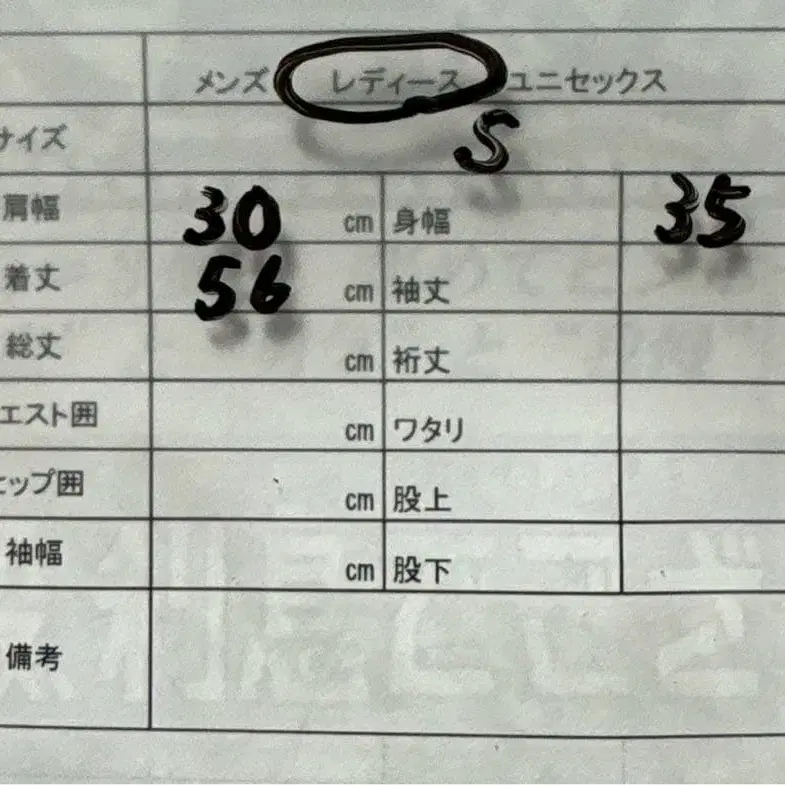 メンズ レディース ユニセックス
サイズ S
肩幅 30 cm 身幅 35
着丈 56 cm 袖丈
総丈 cm 裄丈
エスト囲 cm ワタリ
ヒップ囲 cm 股上
袖幅 cm 股下
備考